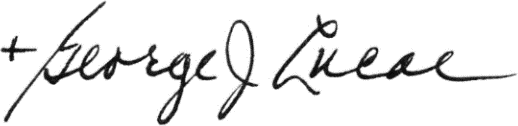 + George J Lucas